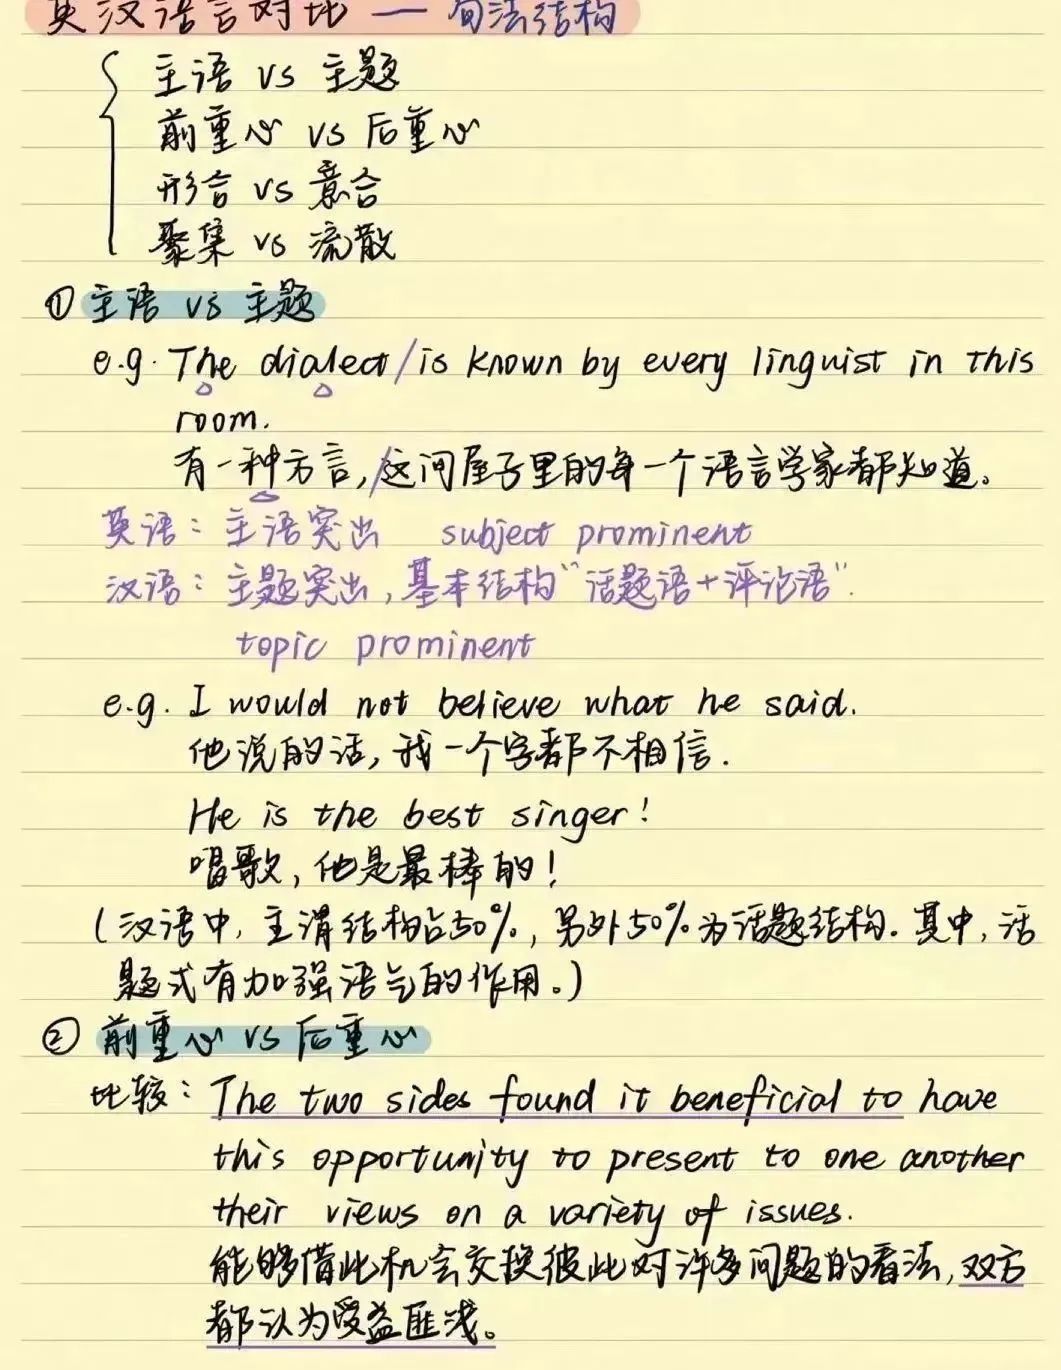 英汉语言对比 — 句法结构
主语 vs 主题
前重心 vs 后重心
形合 vs 意合
聚集 vs 流散
① 主语 vs 主题
e.g. The dialect / is known by every linguist in this
room.
有一种方言, / 这间屋子里的每一个语言学家都知道。
英语: 主语突出 subject prominent
汉语: 主题突出, 基本结构“话题语+评论语”.
topic prominent
e.g. I would not believe what he said.
他说的话, 我一个字都不相信.
He is the best singer!
唱歌, 他是最棒的!
(汉语中, 主谓结构占50%, 另外50%为话题结构. 其中, 话
题式有加强语气的作用。)
② 前重心 vs 后重心
比较: The two sides found it beneficial to have
this opportunity to present to one another
their views on a variety of issues.
能够借此机会交换彼此对许多问题的看法, 双方
都认为受益匪浅。